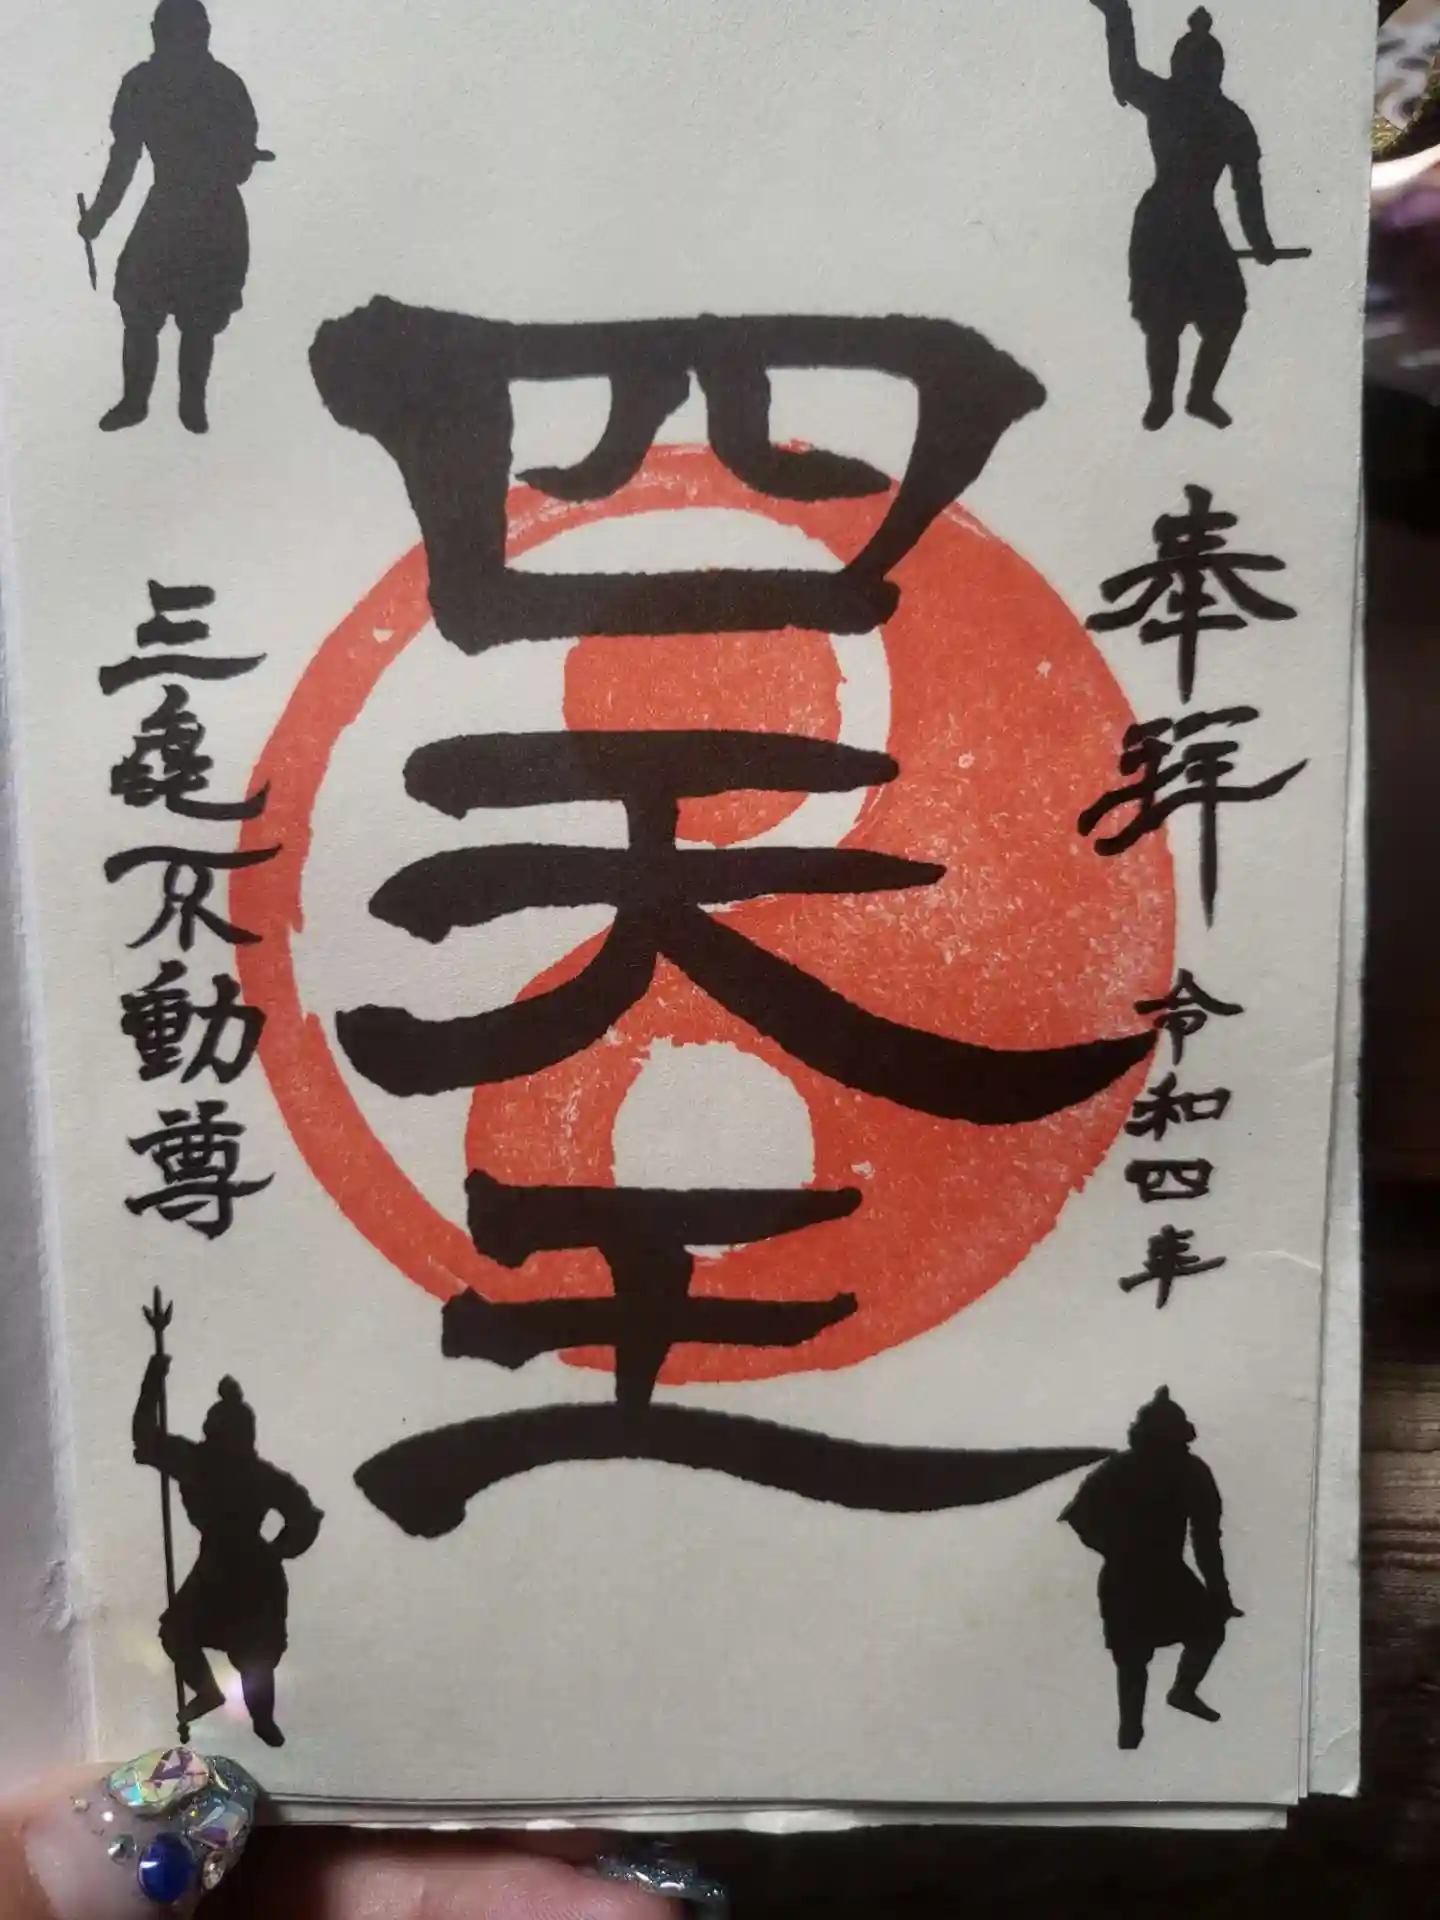 奉拝
令和四年
四天王
三亀不動尊